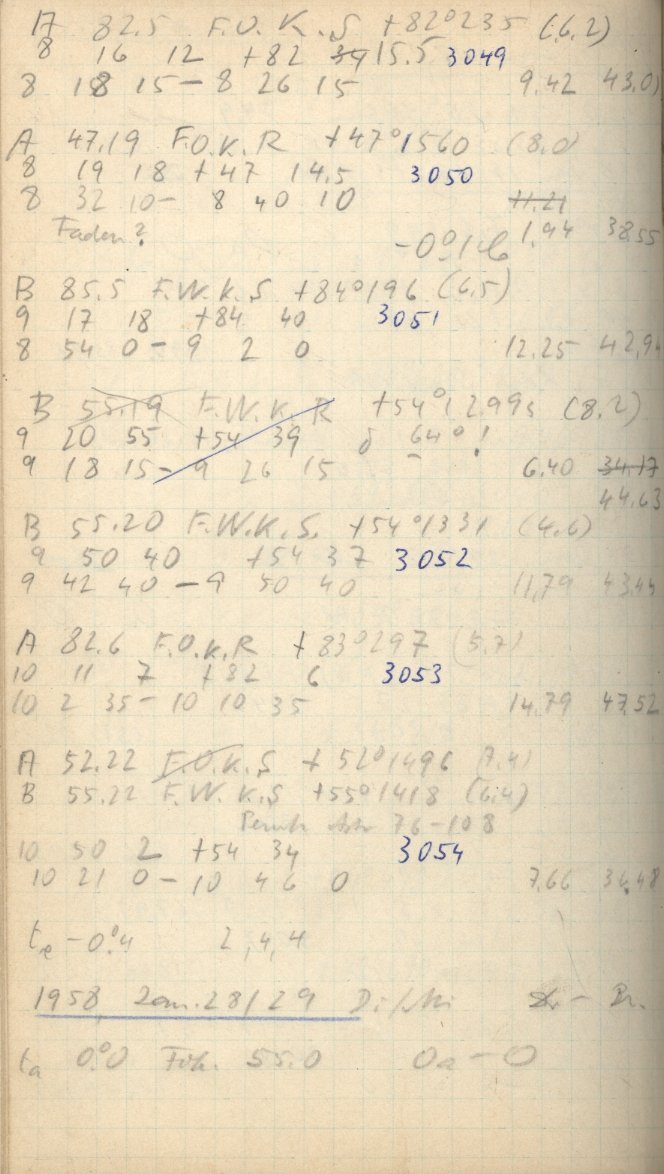 A 82.5 F.O.K.S +82°235 (6,2)
8 16 12 +82 39 15.5 3049
8 18 15 - 8 26 15 9.42 43.0
A 47.19 F.O.K.R +47°1560 (8.0)
8 19 18 +47 14.5 3050
8 32 10 - 8 40 10 11.21
Faden? -0°,1 1,94 38.55
B 85.5 F.W.K.S +84°196 (6,5)
9 17 18 +84 40 3051
8 54 0 - 9 2 0 12.25 42,9
B 55.19 F.W.K.R +54°1299 (8.2)
9 20 55 +54 39 δ 64°!
9 18 15 - 9 26 15 6.40 34.17
44.63
B 55.20 F.W.K.S. +54°1331 (4,6)
9 50 40 +54 37 3052
9 42 40 - 9 50 40 11,79 43.44
A 82.6 F.O.K.R +83°297 (5.7)
10 11 7 +82 6 3053
10 2 35 - 10 10 35 14.79 47.52
A 52.22 F.O.K.S +52°1496 (7.4)
B 55.22 F.W.K.S +55°1418 (6.4)
76-108
10 50 2 +54 34 3054
10 21 0 - 10 46 0 7.66 36.48
te -0°.4 2,4,4
1958 Jan. 28/29
ta 0°.0 Fok. 55.0 0a - 0